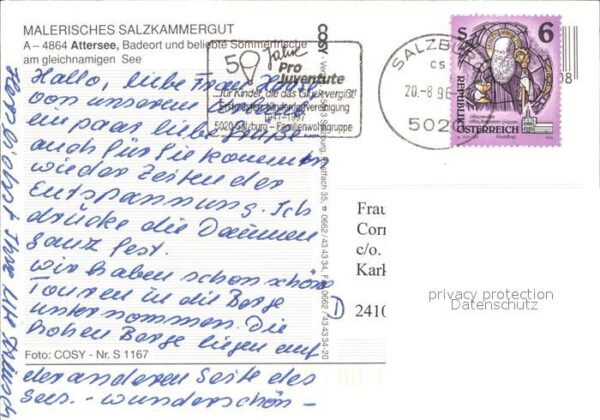 MALERISCHES SALZKAMMERGUT
A – 4864 Attersee, Badeort und beliebte Sommerfrische
am gleichnamigen See
Hallo, liebe Frau
von unserem
ein paar liebe Grüße -
auch für Sie kommen
wieder Zeiten der
Entspannung. Ich
drücke die Daumen
ganz fest.
wir haben schon schöne
Touren in die Berge
unternommen. Die
hohen Berge liegen auf
der anderen Seite des
Sees. - wunderschön -
Herzlichst Ihre
Foto: COSY - Nr. S 1167
COSY
Postfach 35, 0662/43 43 34, Fax 0662/43 43 34-20
50 Jahre
Pro
Juventute
...für Kinder, die das Glück vergißt!
1947-1997
5020 Salzburg – Familienwohngruppe
SALZBURG
CS
20.-8.96
502
S 6
REPUBLIK
ÖSTERREICH
08
Frau
Corn
c/o.
Kark
D 2410
privacy protection
Datenschutz